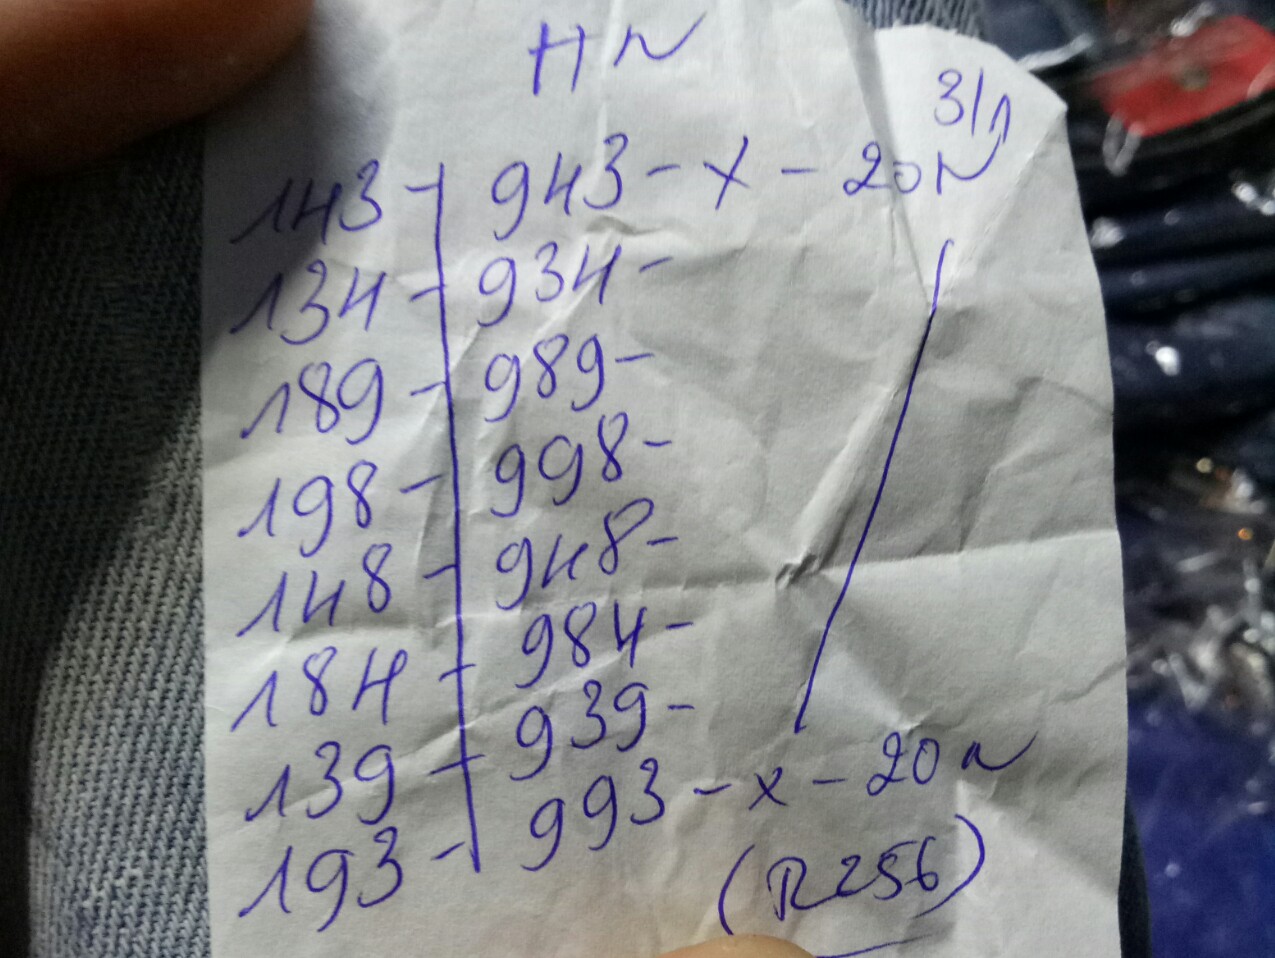 HN
3/1
143 - 943 - x - 20N
134 - 934 -
189 - 989 -
198 - 998 -
148 - 948 -
184 - 984 -
139 - 939 -
193 - 993 - x - 20n
(R256)